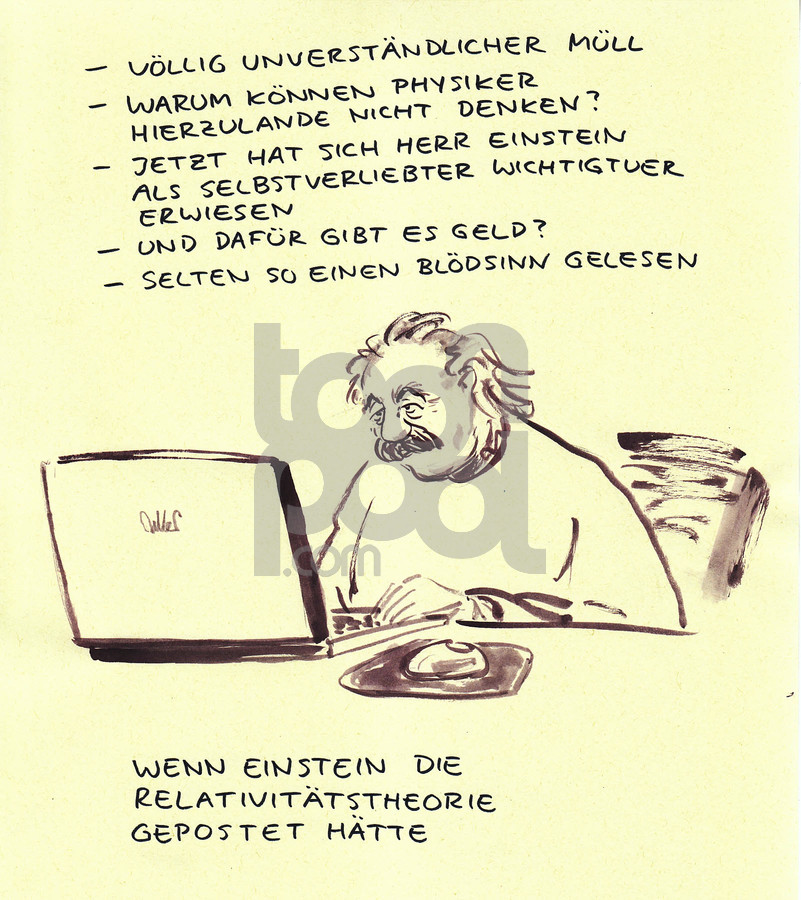 – VÖLLIG UNVERSTÄNDLICHER MÜLL
– WARUM KÖNNEN PHYSIKER
HIERZULANDE NICHT DENKEN?
– JETZT HAT SICH HERR EINSTEIN
ALS SELBSTVERLIEBTER WICHTIGTUER
ERWIESEN
– UND DAFÜR GIBT ES GELD?
– SELTEN SO EINEN BLÖDSINN GELESEN
toon
pool
.com
WENN EINSTEIN DIE
RELATIVITÄTSTHEORIE
GEPOSTET HÄTTE